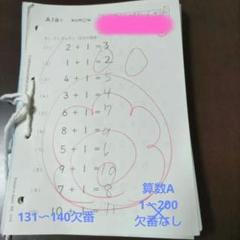 2+1=3
1+1=2
4+1=5
3+1=4
6+1=7
8+1=9
5+1=6
9+1=10
7+1=8
10+1=11
131〜140欠番
算数A
1〜200
欠番なし